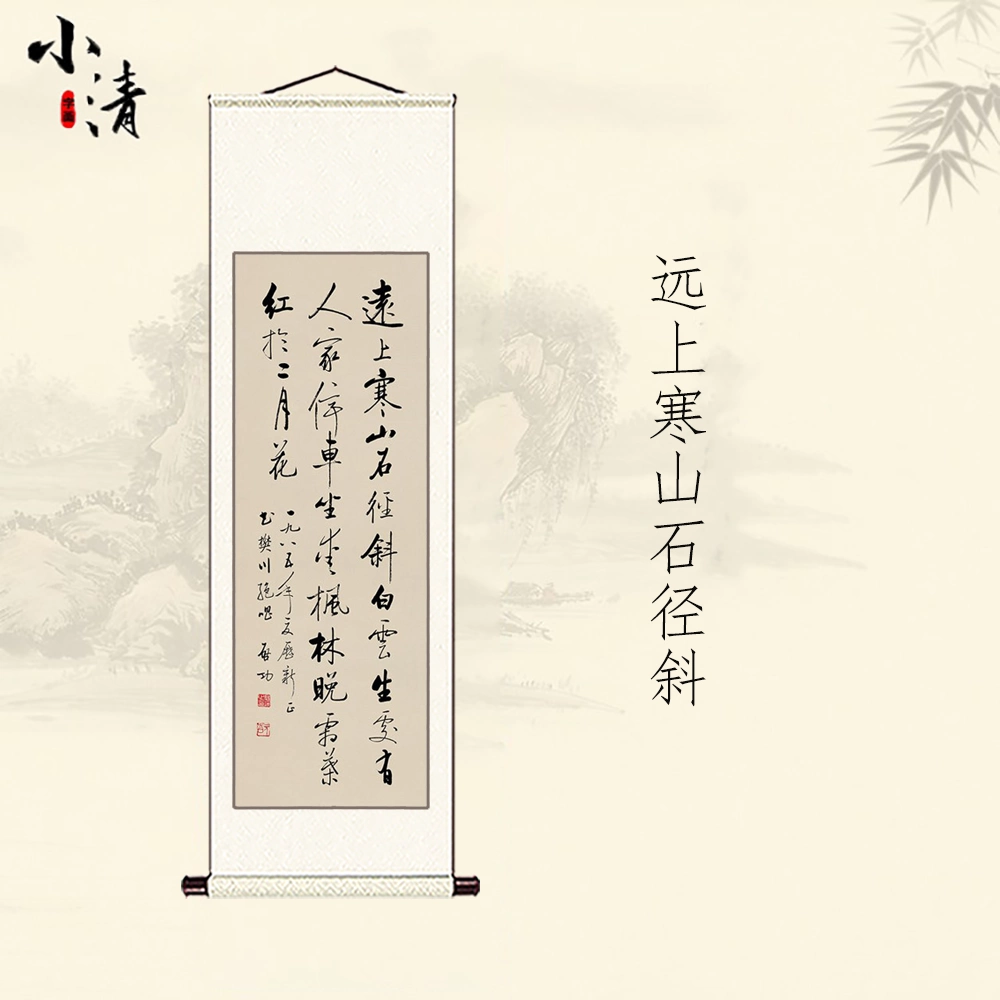 小清
字画
遠上寒山石徑斜白雲生處有
人家停車坐愛楓林晚霜葉
紅於二月花
一九八五年夏歷新正
書樊川絕唱 啟功
远上寒山石径斜